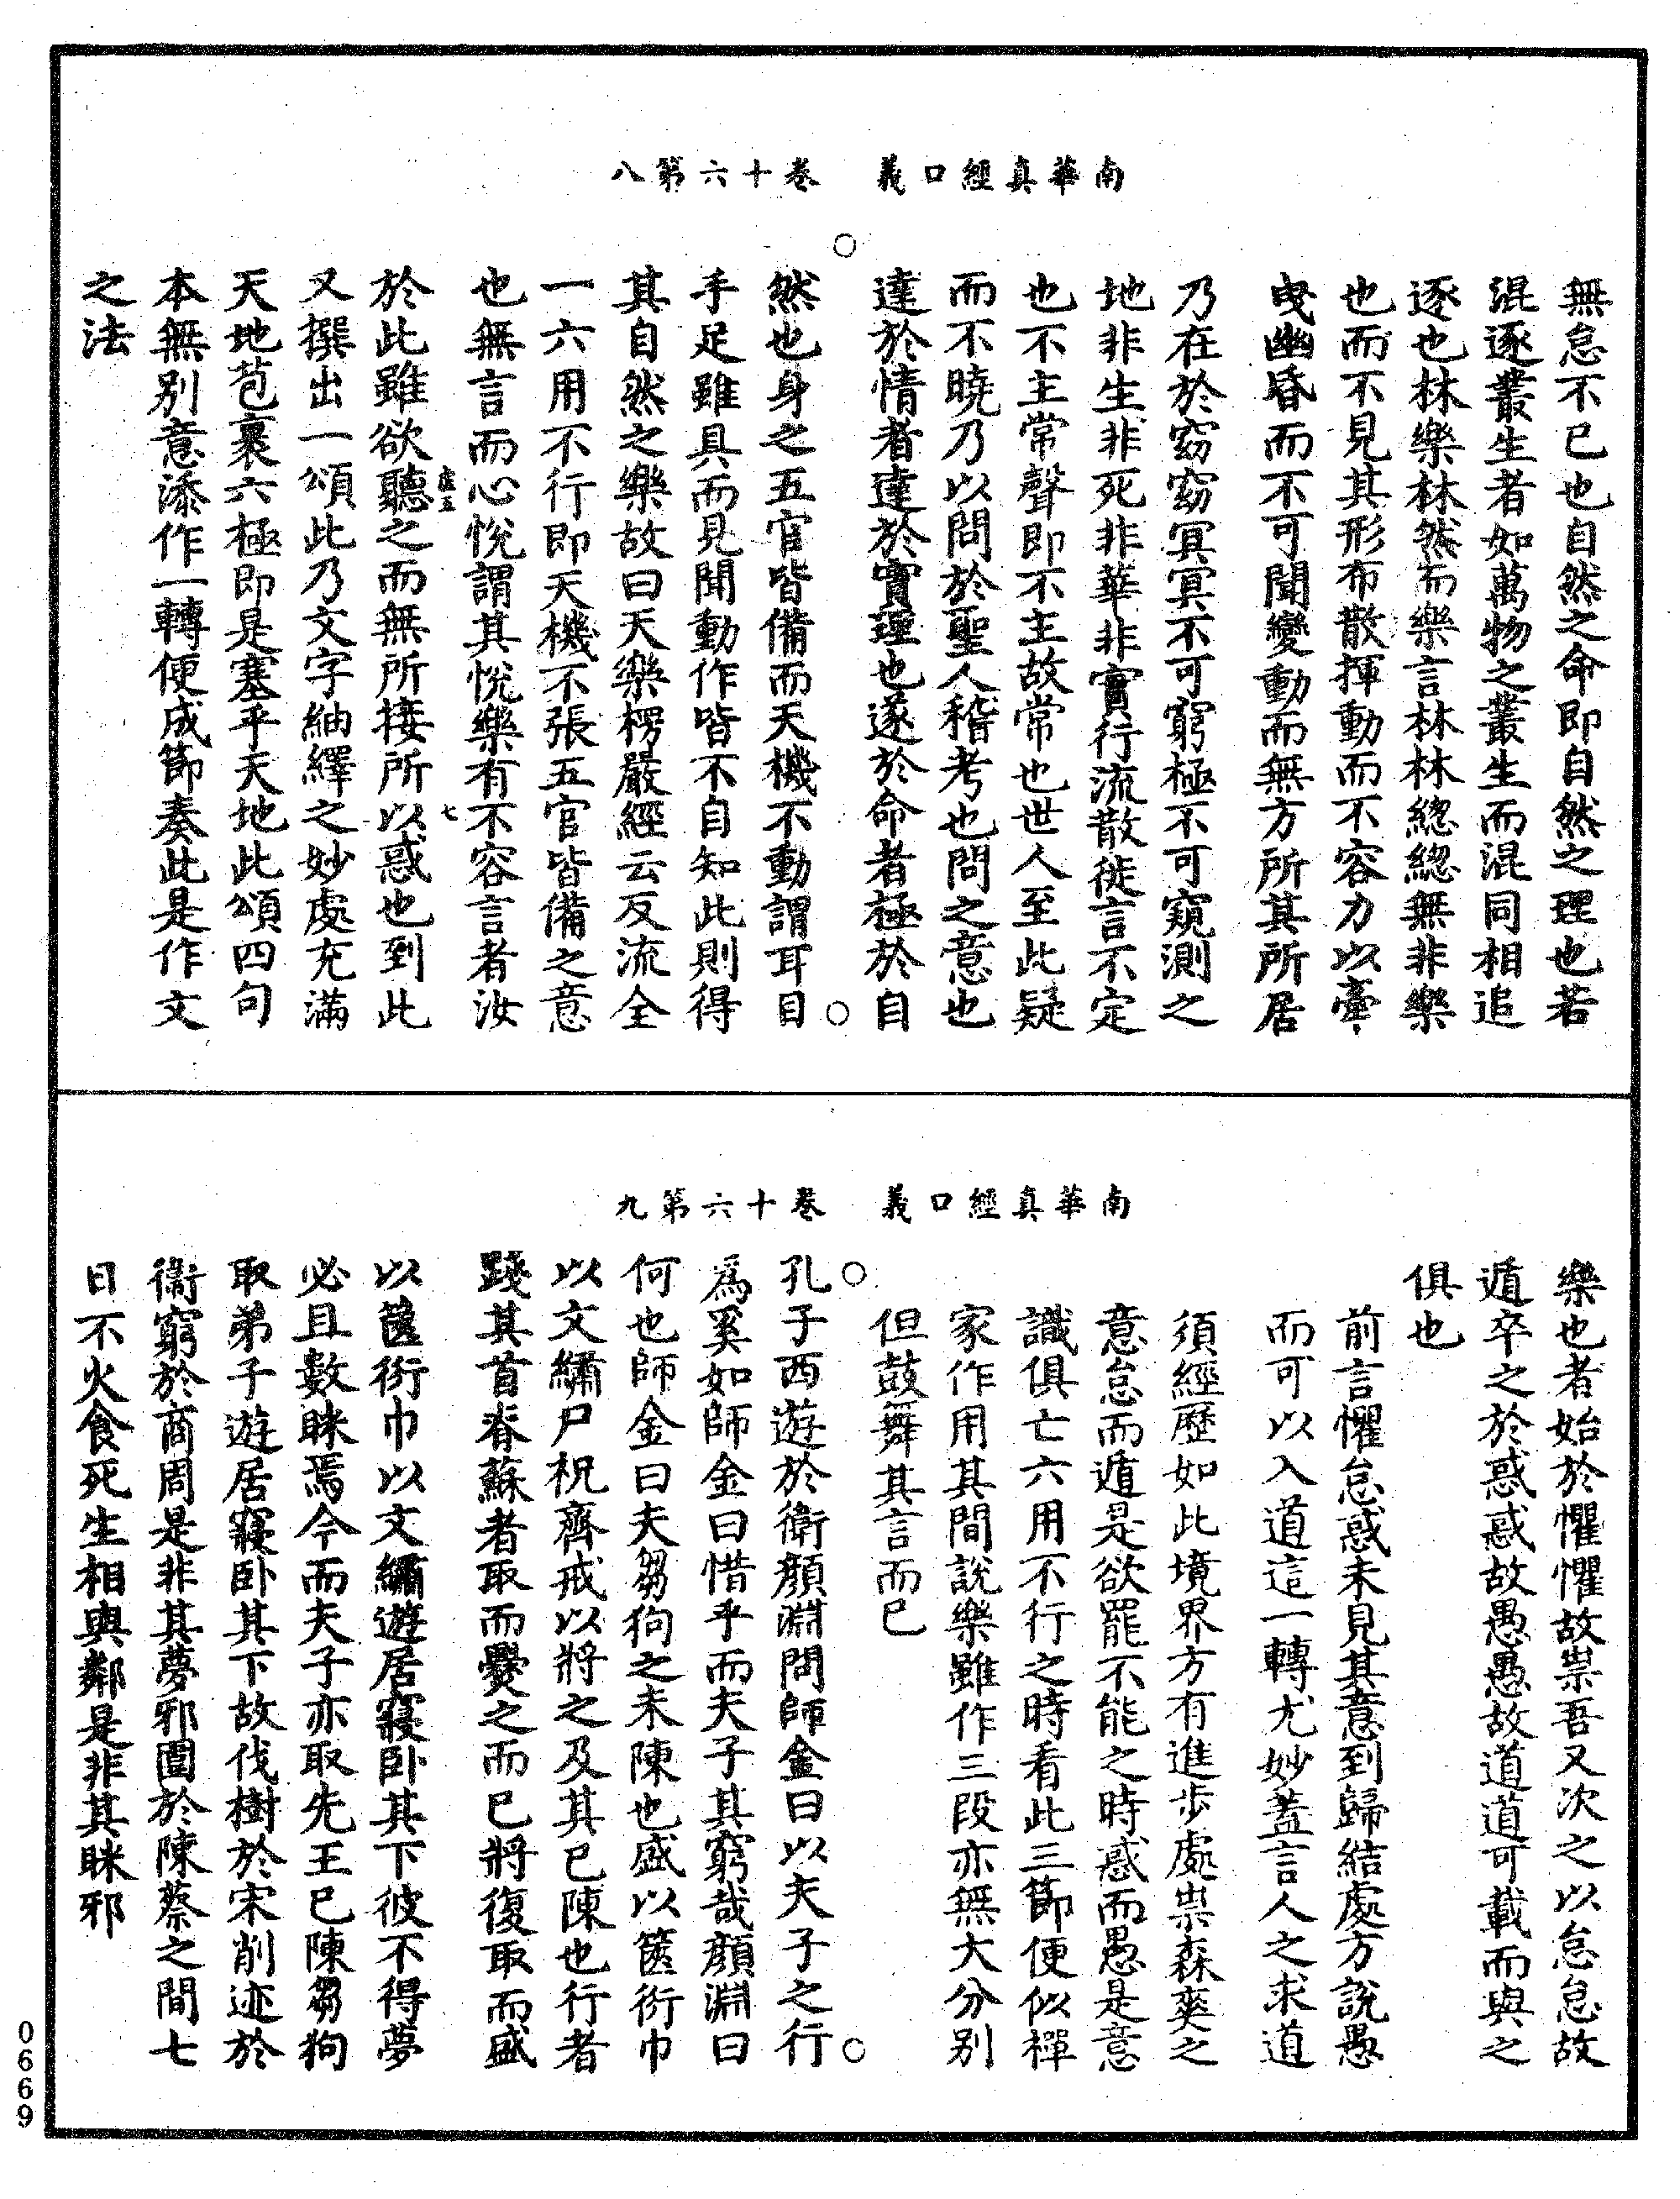 南華真經口義　卷十六第八
無怠不已也自然之命即自然之理也若
混逐叢生者如萬物之叢生而混同相追
逐也林樂林然而樂言林林緫緫無非樂
也而不見其形布散揮動而不容力以牽
曳幽昏而不可聞變動而無方所其所居
乃在於窈窈冥冥不可窮極不可窺測之
地非生非死非華非實行流散徙言不定
也不主常聲即不主故常也世人至此疑
而不曉乃以問於聖人稽考也問之意也
達於情者達於實理也遂於命者極於自
然也身之五官皆備而天機不動謂耳目
手足雖具而見聞動作皆不自知此則得
其自然之樂故曰天樂楞嚴經云反流全
一六用不行即天機不張五官皆備之意
也無言而心悅謂其悅樂有不容言者汝
虛五　七
於此雖欲聽之而無所接所以惑也到此
又撰出一頌此乃文字紬繹之妙處充滿
天地苞裹六極即是塞乎天地此頌四句
本無別意添作一轉便成節奏此是作文
之法
南華真經口義　卷十六第九
樂也者始於懼懼故祟吾又次之以怠怠故
遁卒之於惑惑故愚愚故道道可載而與之
俱也
前言懼怠惑未見其意到歸結處方說愚
而可以入道這一轉尤妙蓋言人之求道
須經歷如此境界方有進步處祟森爽之
意怠而遁是欲罷不能之時惑而愚是意
識俱亡六用不行之時看此三節便似禪
家作用其間說樂雖作三段亦無大分別
但鼓舞其言而已
孔子西遊於衛顏淵問師金曰以夫子之行
為奚如師金曰惜乎而夫子其窮哉顏淵曰
何也師金曰夫芻狗之未陳也盛以篋衍巾
以文繡尸祝齊戒以將之及其已陳也行者
踐其首脊蘇者取而爨之而已將復取而盛
以篋衍巾以文繡遊居寢卧其下彼不得夢
必且數眯焉今而夫子亦取先王已陳芻狗
取弟子遊居寢卧其下故伐樹於宋削迹於
衛窮於商周是非其夢邪圍於陳蔡之間七
日不火食死生相與鄰是非其眯邪
0669